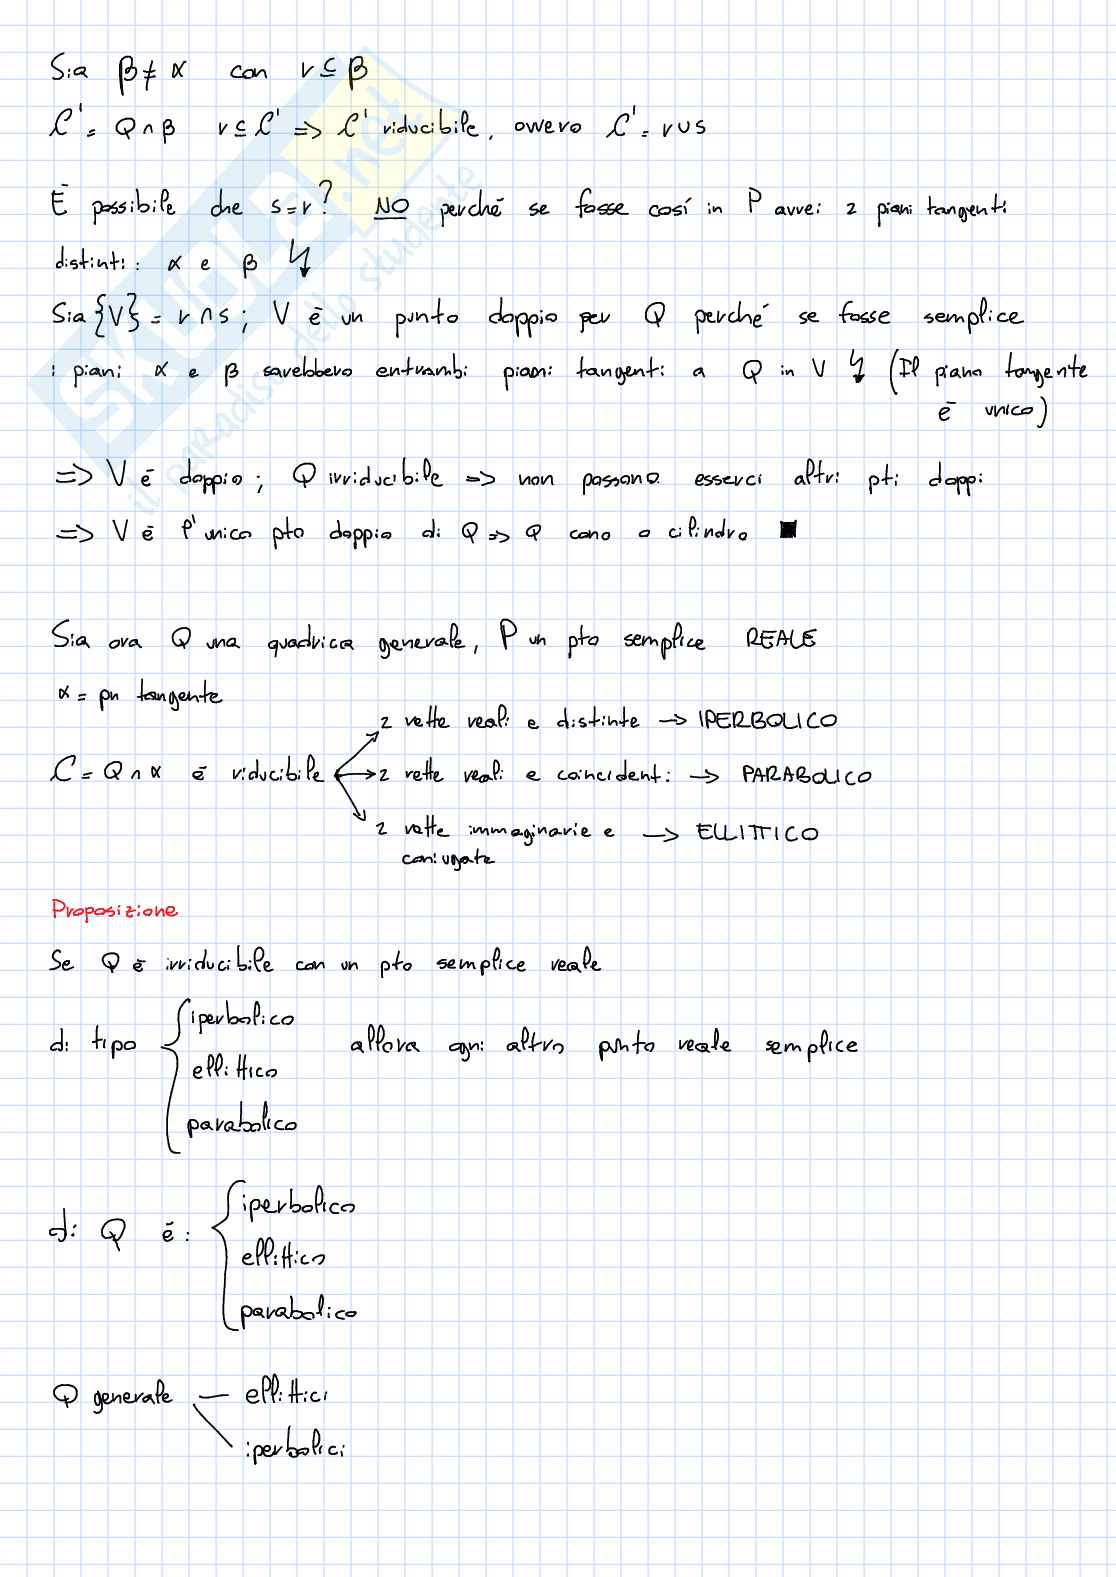 Sia β ≠ α con r ⊆ β
C' = Q ∩ β r ⊆ C' => C' riducibile, ovvero C' = r ∪ s
È possibile che s=r? NO perché se fosse cosí in P avrei 2 piani tangenti
distinti: α e β ↯
Sia {V} = r ∩ s; V è un punto doppio per Q perché se fosse semplice
i piani α e β sarebbero entrambi piani tangenti a Q in V ↯ (Il piano tangente
è unico)
=> V è doppio; Q irriducibile => non possono esserci altri pti doppi
=> V è l'unico pto doppio di Q => Q cono o cilindro ■
Sia ora Q una quadrica generale, P un pto semplice REALE
α = pn tangente
2 rette reali e distinte → IPERBOLICO
C = Q ∩ α è riducibile → 2 rette reali e coincidenti → PARABOLICO
2 rette immaginarie e → ELLITTICO
coniugate
Proposizione
Se Q è irriducibile con un pto semplice reale
{ iperbolico
di tipo allora ogni altro punto reale semplice
ellittico
parabolico
{ iperbolico
di Q è:
ellittico
parabolico
Q generale — ellittici
iperbolici
SKUOLA.net
il paradiso dello studente